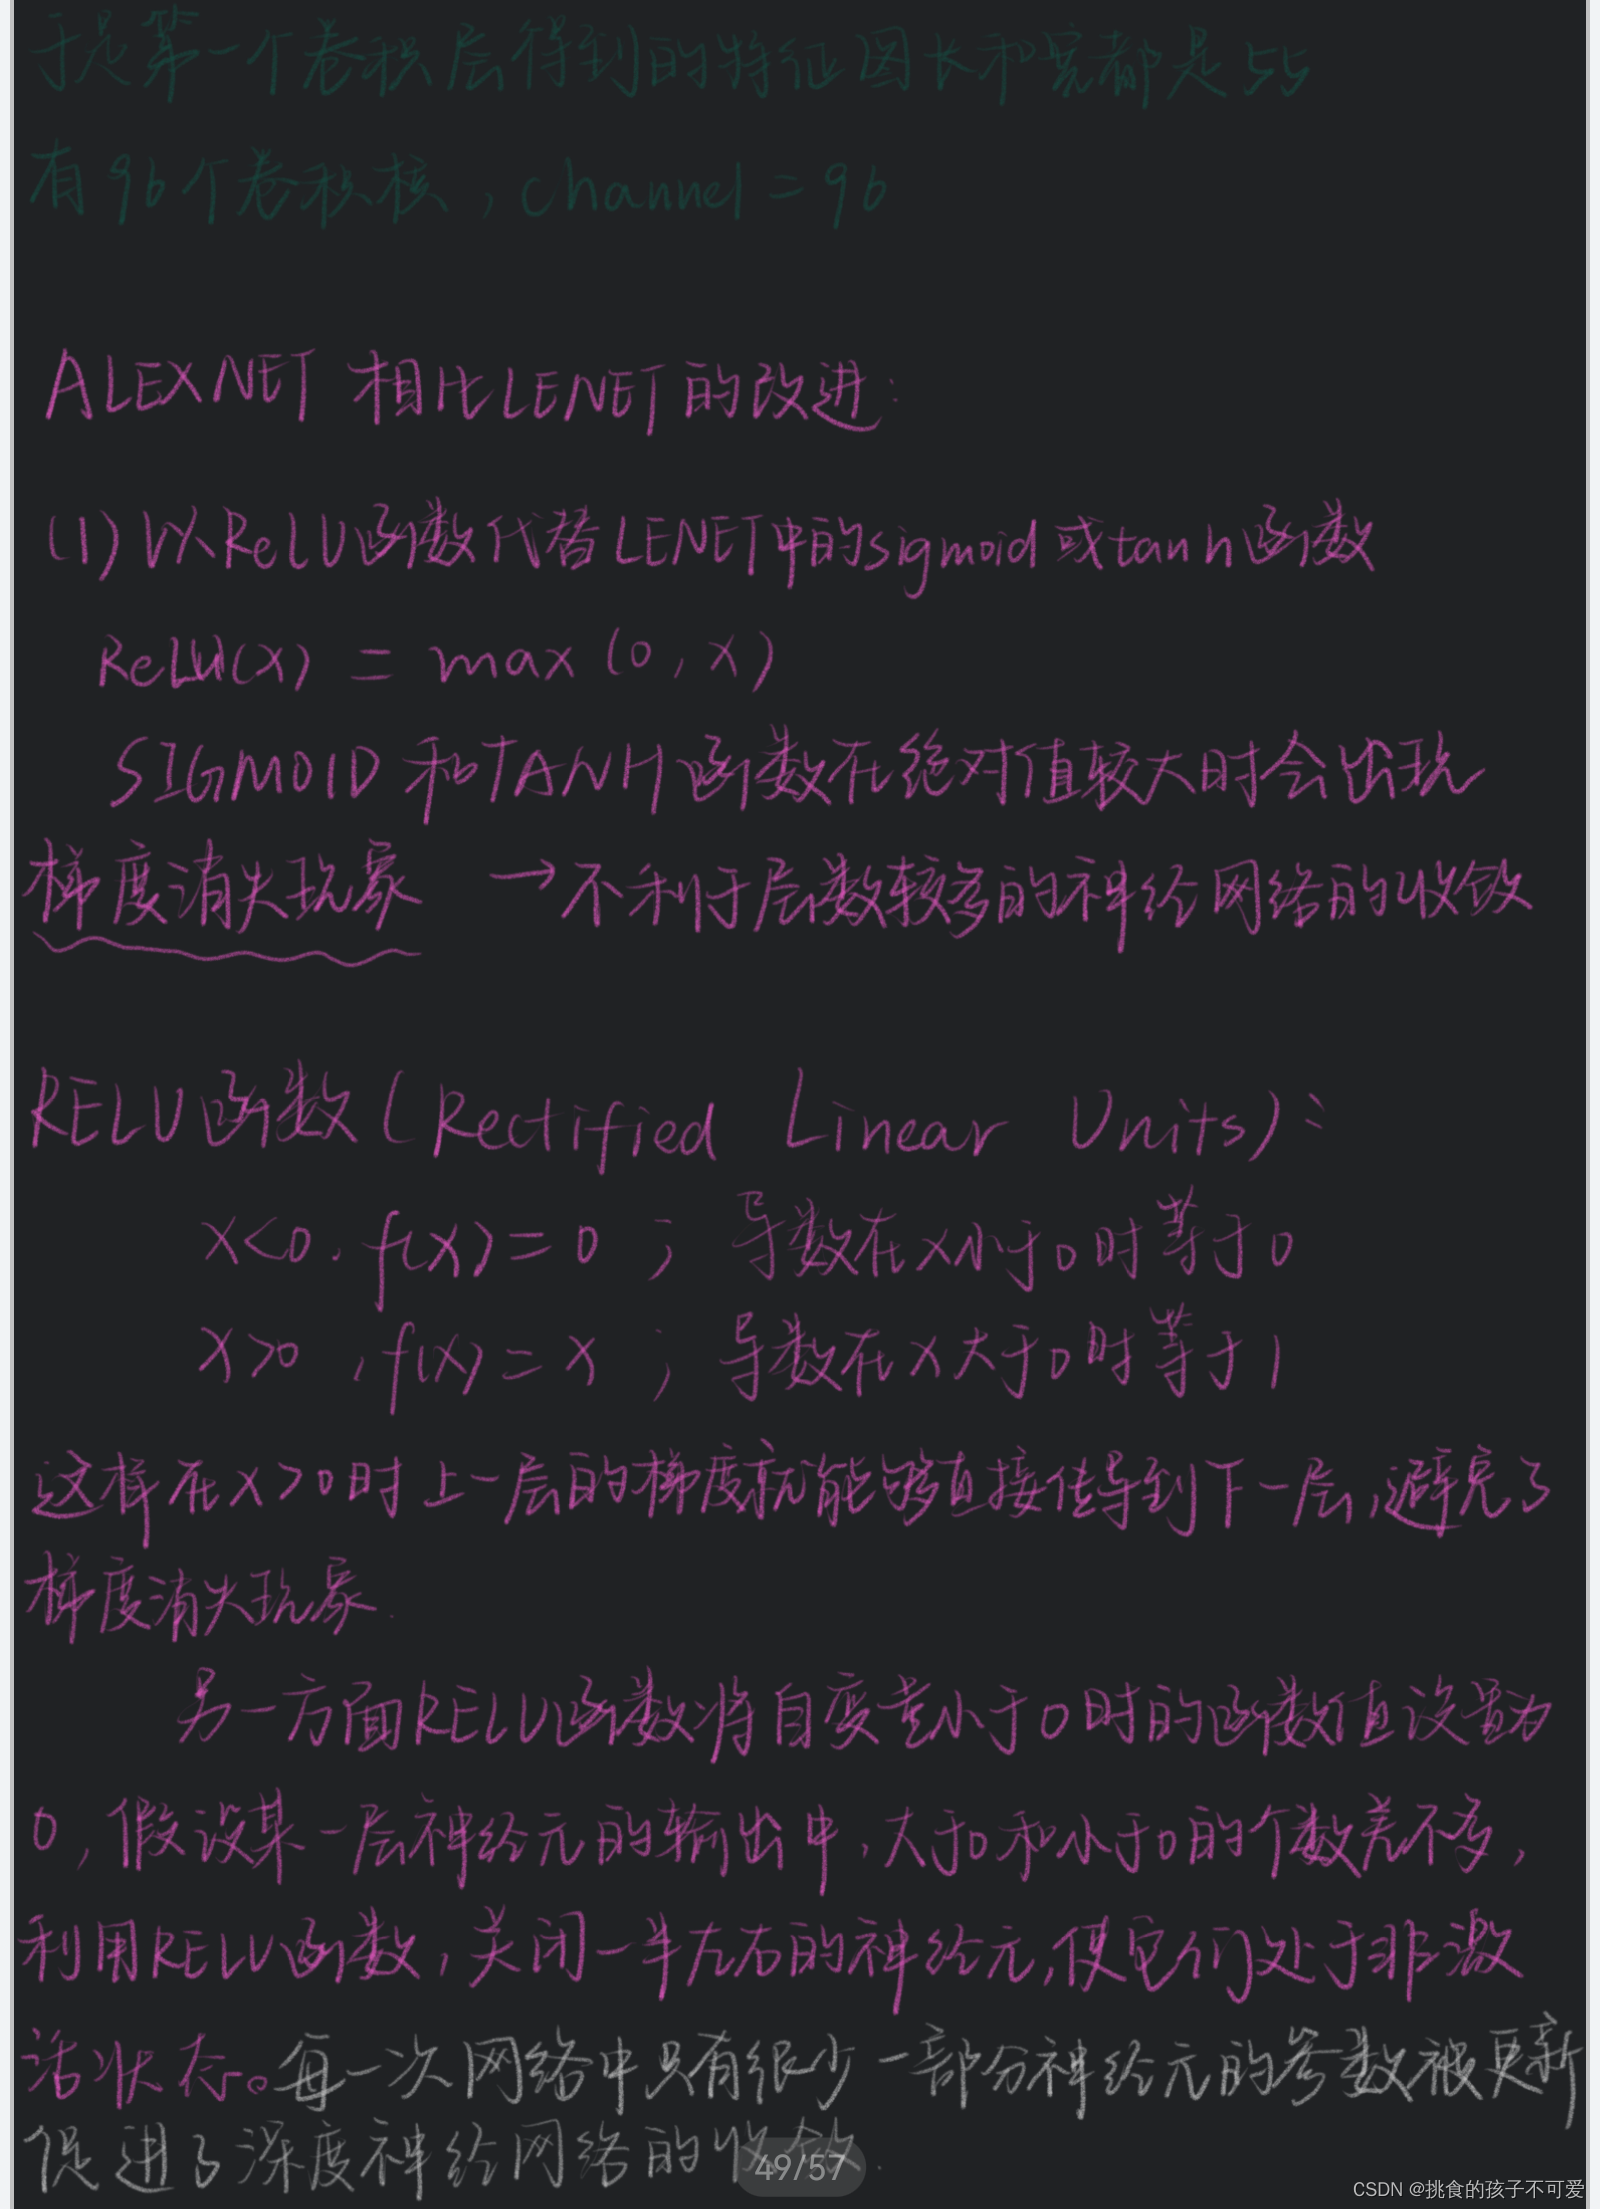 于是第一个卷积层得到的特征图长和宽都是55
有96个卷积核，channel=96
ALEXNET 相比LENET的改进：
(1)以ReLU函数代替LENET中的sigmoid或tanh函数
ReLU(x) = max(0,x)
SIGMOID和TANH函数在绝对值较大时会出现
梯度消失现象 →不利于层数较多的神经网络的收敛
RELU函数(Rectified Linear Units)：
x<0，f(x)=0；导数在x小于0时等于0
x>0，f(x)=x；导数在x大于0时等于1
这样在x>0时上一层的梯度就能够直接传导到下一层，避免了
梯度消失现象.
另一方面RELU函数将自变量小于0时的函数值设置为
0，假设某一层神经元的输出中，大于0和小于0的个数差不多，
利用RELU函数，关闭一半左右的神经元，使它们处于非激
活状态。每一次网络中只有很少一部分神经元的参数被更新
促进了深度神经网络的收敛.
49/57
CSDN @挑食的孩子不可爱